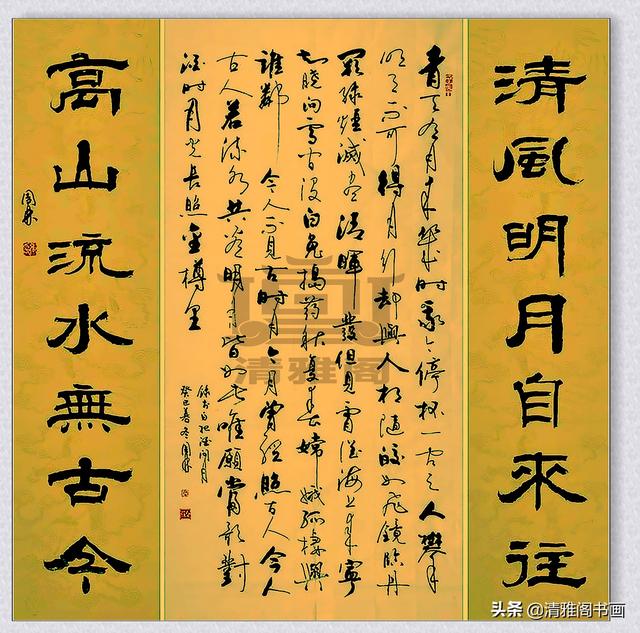 清風明月自來往
青天有月来幾时我今停杯一问之人攀
明月不可得月行却與人相随皎如飛鏡临丹
阙绿煙滅盡清暉發但見宵從海上来寧
知曉向雲间没白兔搗药秋復春嫦娥孤棲與
誰鄰 今人不見古时月今月曾经照古人今人
古人若流水共看明月皆如此唯願當歌對
酒时月光長照金樽里
録李白把酒问月
癸巳暮冬
高山流水無古今
清雅阁
头条 @清雅阁书画